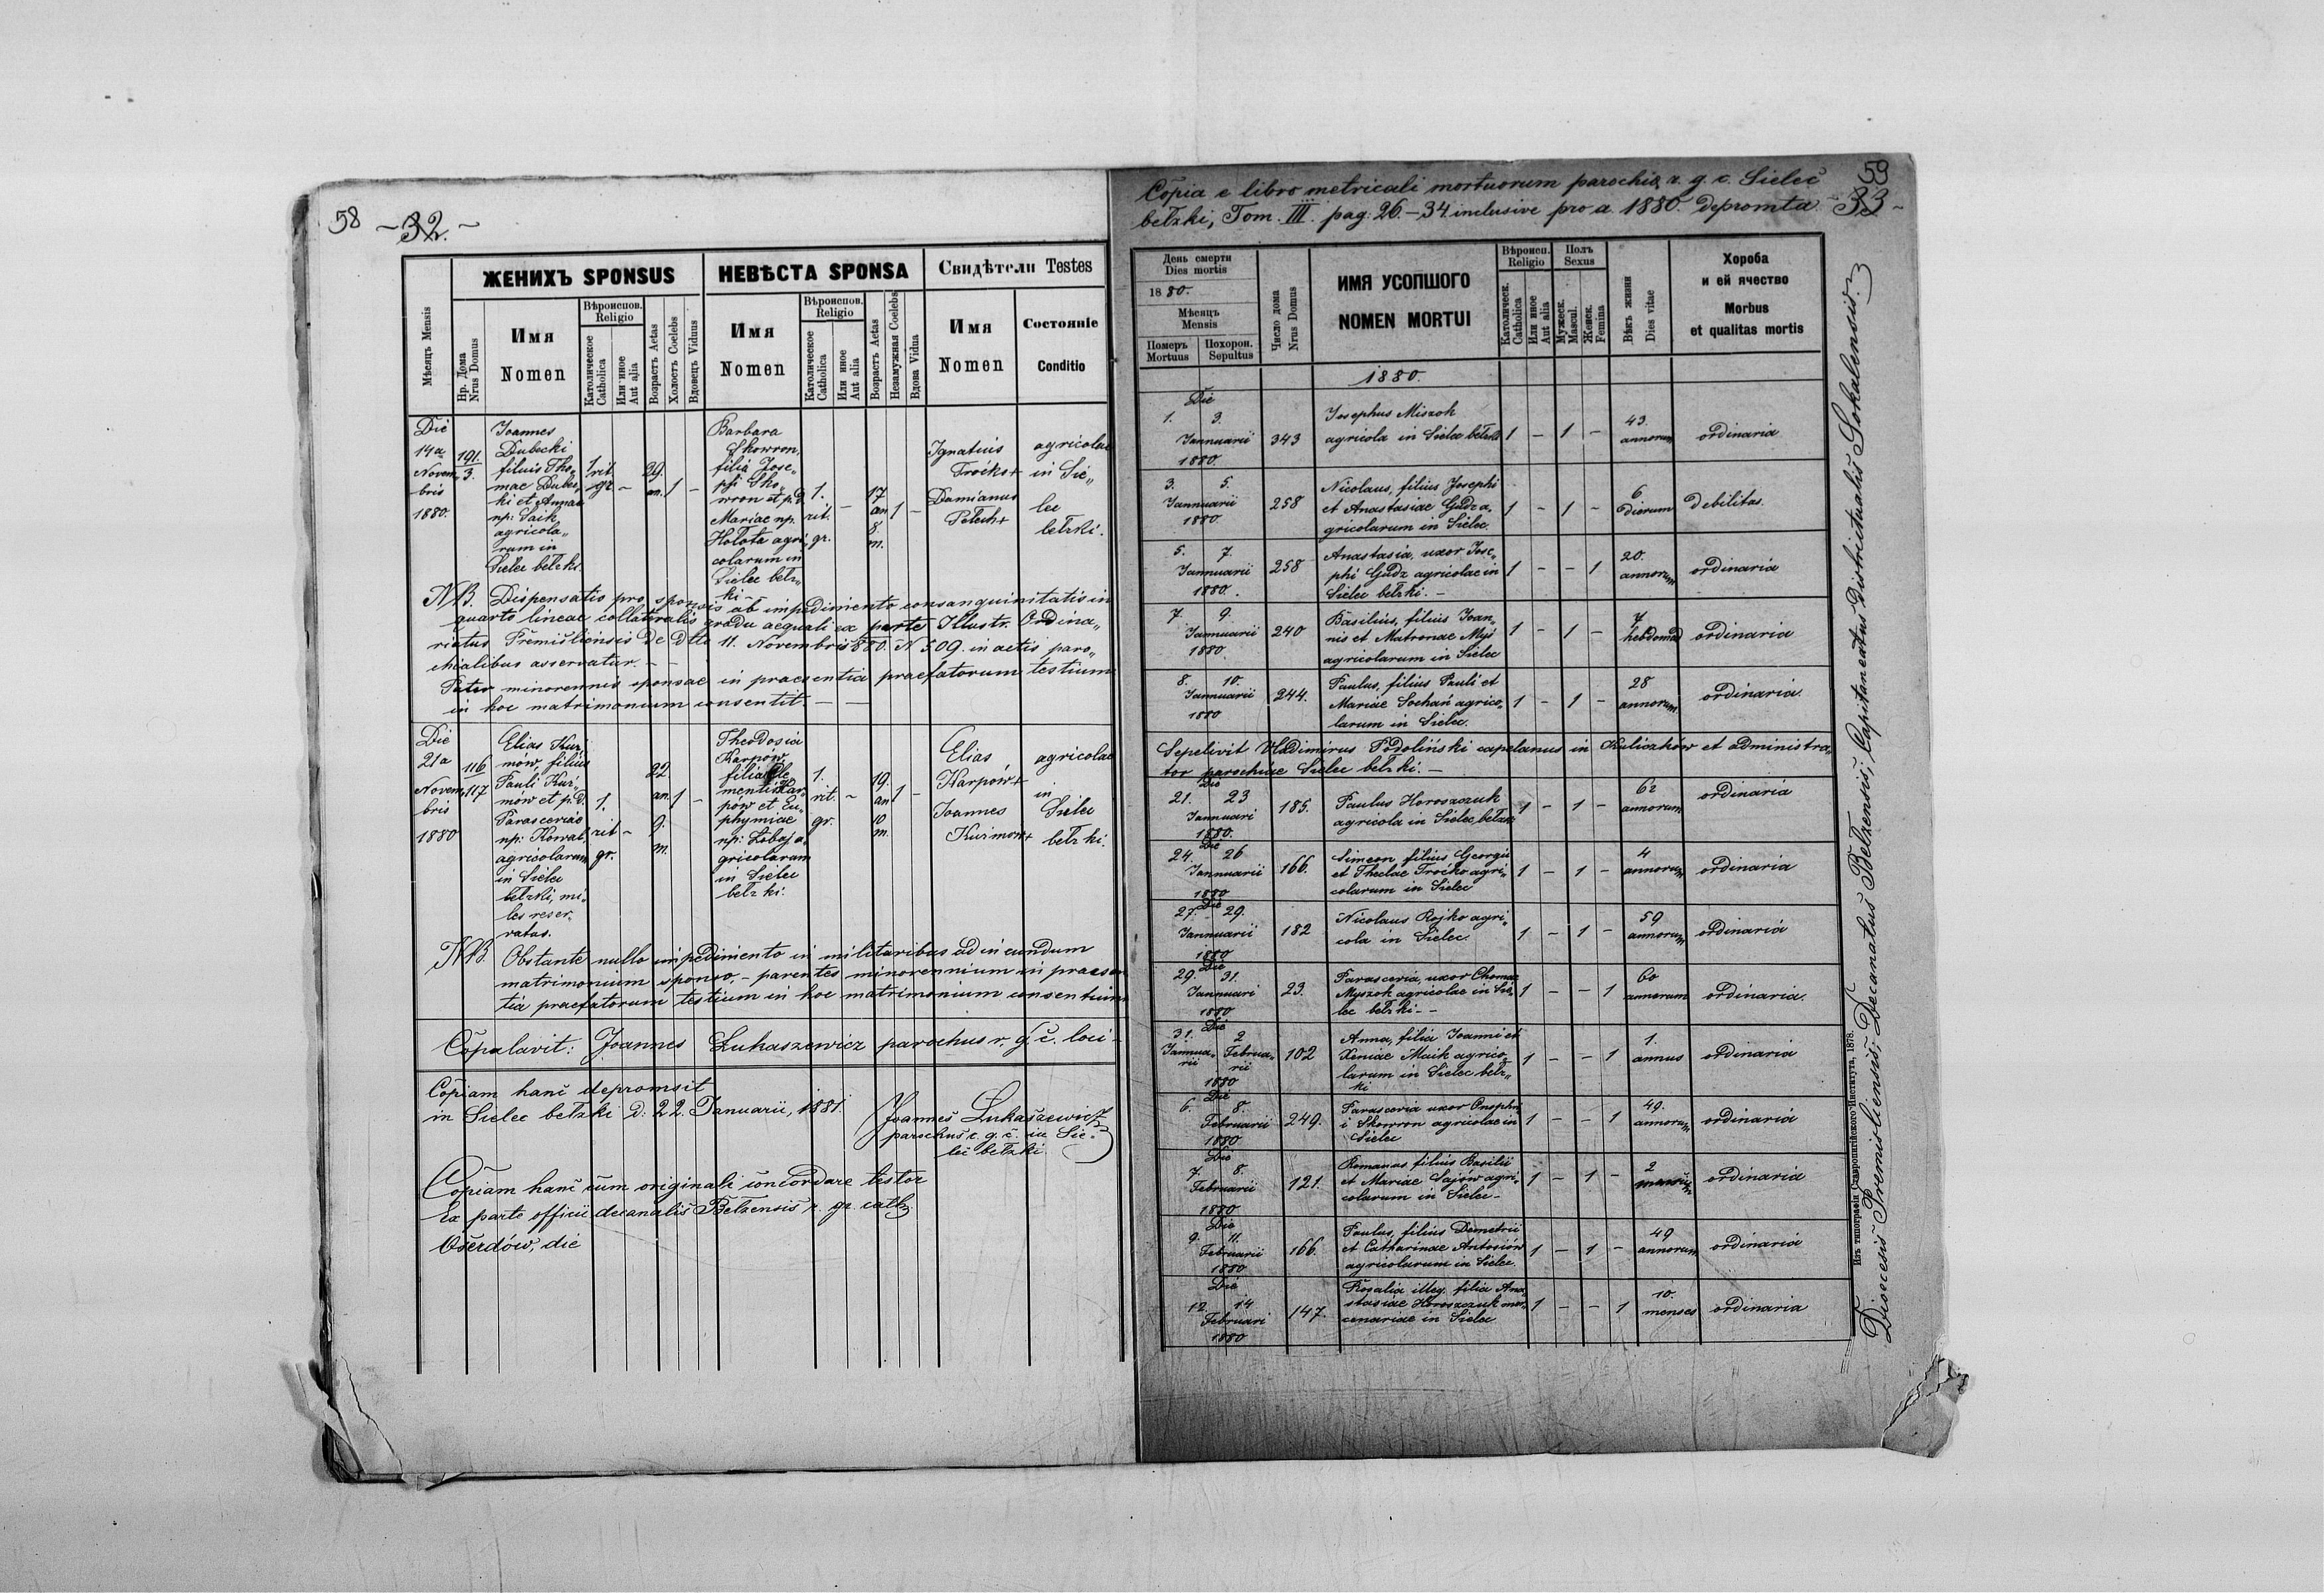 58 - 32. -
ЖЕНИХЪ SPONSUS
НЕВѢСТА SPONSA
Свидѣтели Testes
Мѣсяцъ Mensis
Нр. Дома
Nrus Domus
Имя
Nomen
Вѣроиспов.
Religio
Католическое
Catholica
Или иное
Aut alia
Возрастъ Aetas
Холостъ Coelebs
Вдовецъ Viduus
Имя
Nomen
Вѣроиспов.
Religio
Католическое
Catholica
Или иное
Aut alia
Возрастъ Aetas
Незамужная Coelebs
Вдова Vidua
Имя
Nomen
Состояніе
Conditio
Die
14a
Novem„
bris
1880.
191.
3.
Joannes
Dubecki
filius Tho„
mae Dubec„
ki et Annae
np: Saik,
agricola„
rum in
Sielec bełzki.
1
rit.
gr
-
29.
an.
1
-
Barbara
Skowron,
filia Jose„
phi Sko„
wron et p. d.
Mariae np.
Hołota agri„
colarum in
Sielec bełz„
ki -
1.
rit.
gr.
-
17
an
8.
m.
1
-
Ignatius
Troćko +
Damianus
Petech +
agricolae
in Sie„
lec
bełzki.
NB. Dispensatio pro sponsis ab impedimento consanguinitatis in
quarto lineae collateralis gradu aequali ex parte Illustr. Ordina„
riatus Premisliensis de dtto 11. Novembris 880. N 509. in actis paro„
chialibus asservatur. - -
Pater minorennis sponsae in praesentia praefatorum testium
in hoc matrimonium consentit. - -
Die
21a
Novem„
bris
1880
116
117
Elias Kuź
mów, filius
Pauli Kuź„
mów et p. d.
Parasceviae
np: Kowal,
agricolarum
in Sielec
bełzki, mi„
les reser„
vatus.
1.
rit
gr.
-
22
an.
9.
m.
1
-
Theodosia
Karpów,
filia Cle
mentis Kar„
pów et Eu„
phymiae
np: Łobaj a„
gricolarum
in Sielec
bełzki.
1.
rit.
gr.
-
19.
an
10
m.
1
-
Elias
Karpów +
Joannes
Kuźmów +
agricolae
in
Sielec
bełzki.
NB Obstante nullo impedimento in militaribus ad ineundum
matrimonium sponso, - parentes minorennium in praesen
tia praefatorum testium in hoc matrimonium consentiunt
Copulavit: Joannes Łukaszewicz parochus r. g. c. loci -
Copiam hanc depromsit
in Sielec bełzki d: 22. Januarii, 1881.
Joannes Łukaszewicz
parochus r. g. c. in Sie„
lec bełzki
Copiam hanc cum originali concordare testor
Ex parte officii decanalis Bełzensis r. gr. cath.
Oserdów, die
59
- 33 -
Copia e libro metricali mortuorum parochiae r. g. c. Sielec
bełzki, Tom. III. pag: 26. - 34. inclusive pro a. 1880. depromta
День смерти
Dies mortis
1880.
Мѣсяцъ
Mensis
Померъ
Mortuus
Похорон.
Sepultus
Число дома
Nrus Domus
ИМЯ УСОПШОГО
NOMEN MORTUI
Вѣроисп.
Religio
Католическ.
Catholica
Или иное
Aut alia
Полъ
Sexus
Мужеск.
Mascul.
Женск.
Femina
Вѣкъ жизни
Dies vitae
Хороба
и ей ячество
Morbus
et qualitas mortis
1880.
Die
1. 3.
Januarii
1880.
343
Josephus Miszok
agricola in Sielec bełzki
1 - 1 -
43.
annorum
ordinaria
3. 5.
Januarii
1880.
258
Nicolaus, filius Josephi
et Anastasiae Gudz a„
gricolarum in Sielec.
1 - 1 -
6
dierum
debilitas.
5. 7.
Januarii
1880.
258
Anastasia, uxor Jose„
phi Gudz agricolae in
Sielec bełzki. -
1 - - 1
20.
annorum
ordinaria
7. 9.
Januarii
1880
240
Basilius, filius Joan„
nis et Matronae Myś
agricolarum in Sielec
1 - 1 -
7
hebdomad
ordinaria
8. 10.
Januarii
1880
244.
Paulus, filius Pauli et
Mariae Sochań agrico„
larum in Sielec.
1 - 1 -
28
annorum
ordinaria.
Sepelivit Vladimirus Podoliński capelanus in Kuliczków et administra„
tor parochiae Sielec bełzki. -
Die
21. 23
Januari
1880.
185.
Paulus Horoszczuk
agricola in Sielec bełzki
1 - 1 -
62
annorum
ordinaria
Die
24. 26
Januarii
1880
166.
Simeon, filius Georgii
et Theclae Troćko agri„
colarum in Sielec
1 - 1 -
4
annorum
ordinaria
Die
27. 29.
Januarii
1880
182
Nicolaus Rojko agri„
cola in Sielec.
1 - 1 -
59
annorum
ordinaria
Die
29. 31.
Januari
1880
23.
Parascevia, uxor Thomae
Myszok agricolae in Sie„
lec bełzki - -
1 - - 1
60
annorum
ordinaria.
Die
31. 2
Janua„ Februa„
rii rii
1880
102
Anna, filia Joannis et
Xeniae Maik agrico„
larum in Sielec bełz„
ki
1 - - 1
1.
annus
ordinaria
Die
6. 8.
Februarii
1880
249.
Parascevia uxor Onophri
i Skowron agricolae in
Sielec
1 - - 1
49.
annorum
ordinaria
Die
7. 8.
Februarii
1880
121.
Romanus filius Basilii
et Mariae Sajów agri„
colarum in Sielec -
1 - 1 -
2
ordinaria
Die
9. 11.
Februarii
1880
166.
Paulus, filius Demetrii
et Catharinae Antosiów
agricolarum in Sielec.
1 - 1 -
49
annorum
ordinaria
Die
12. 14
Februari
1880
147.
Rosalia illeg. filia Ana„
stasiae Horoszczuk mer„
cenariae in Sielec
1 - - 1
10.
menses
ordinaria
Изъ типографіи Ставропигійского Института, 1878.
Diocesis Premisliensis; Decanatus Bełzensis; Capitaneatus Districtualis Sokalensis.